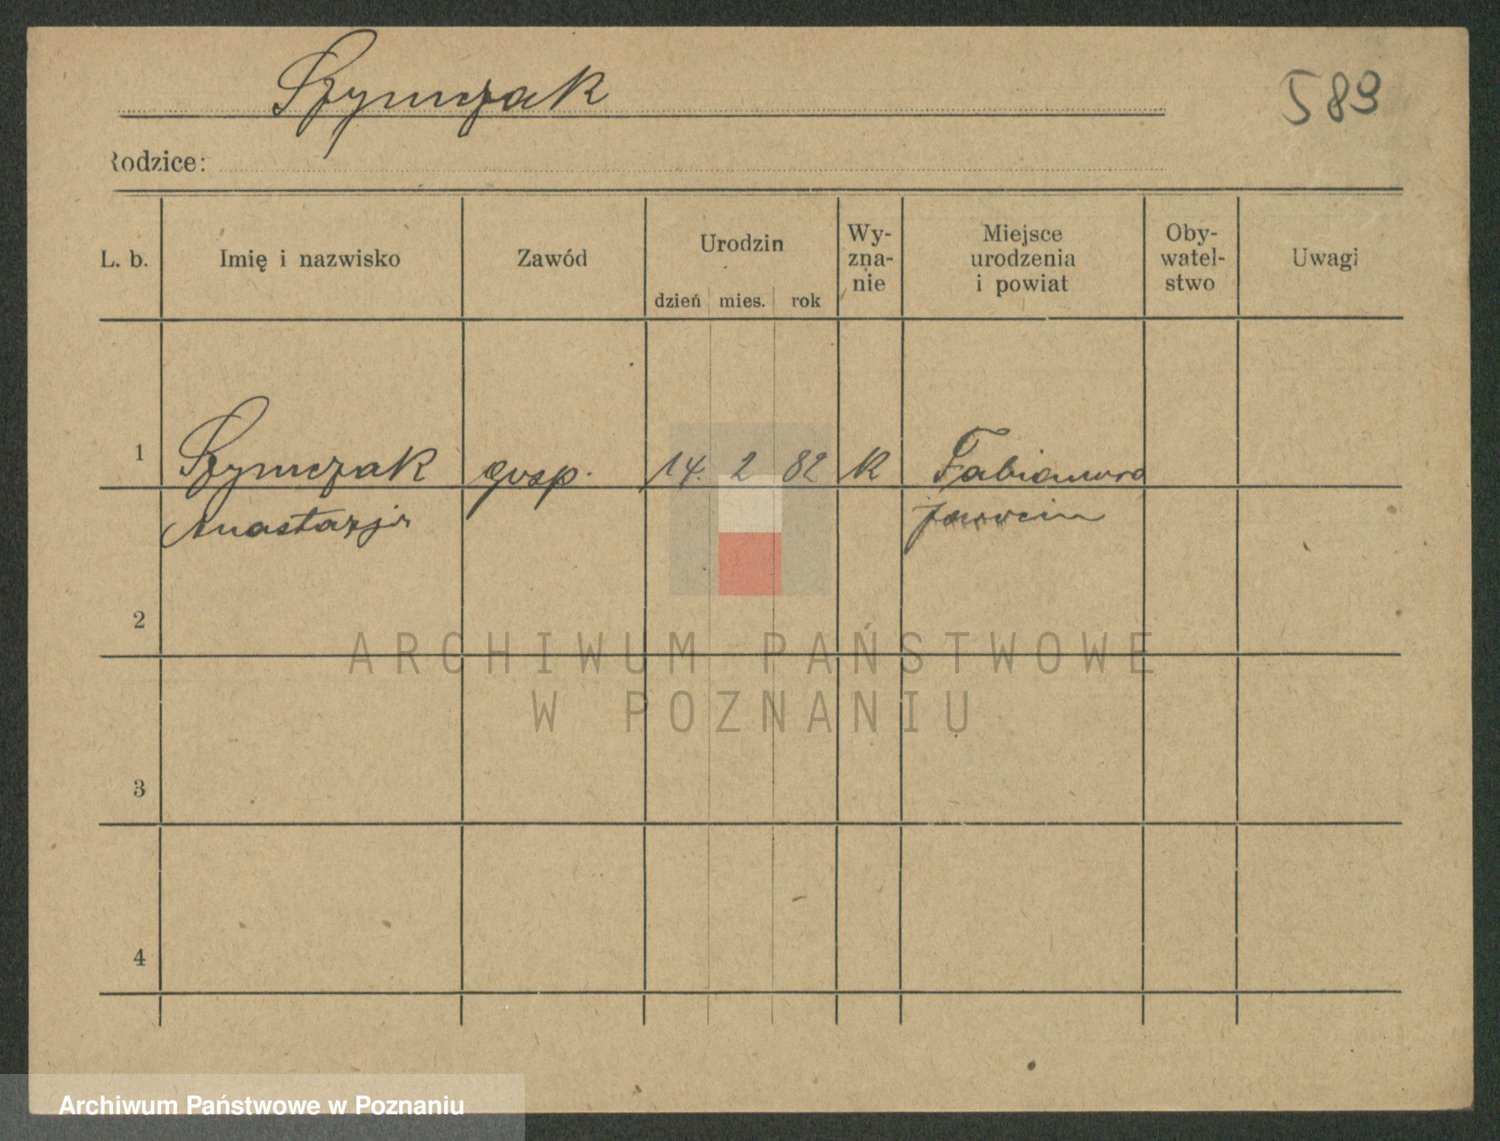 Szymczak
589
Rodzice:
L. b.
Imię i nazwisko
Zawód
Urodzin
dzień mies. rok
Wy-
zna-
nie
Miejsce
urodzenia
i powiat
Oby-
watel-
stwo
Uwagi
1 Szymczak gosp. 14. 2 82 K Fabianowo
Anastazja Jarocin
2
ARCHIWUM PAŃSTWOWE
W POZNANIU
3
4
Archiwum Państwowe w Poznaniu